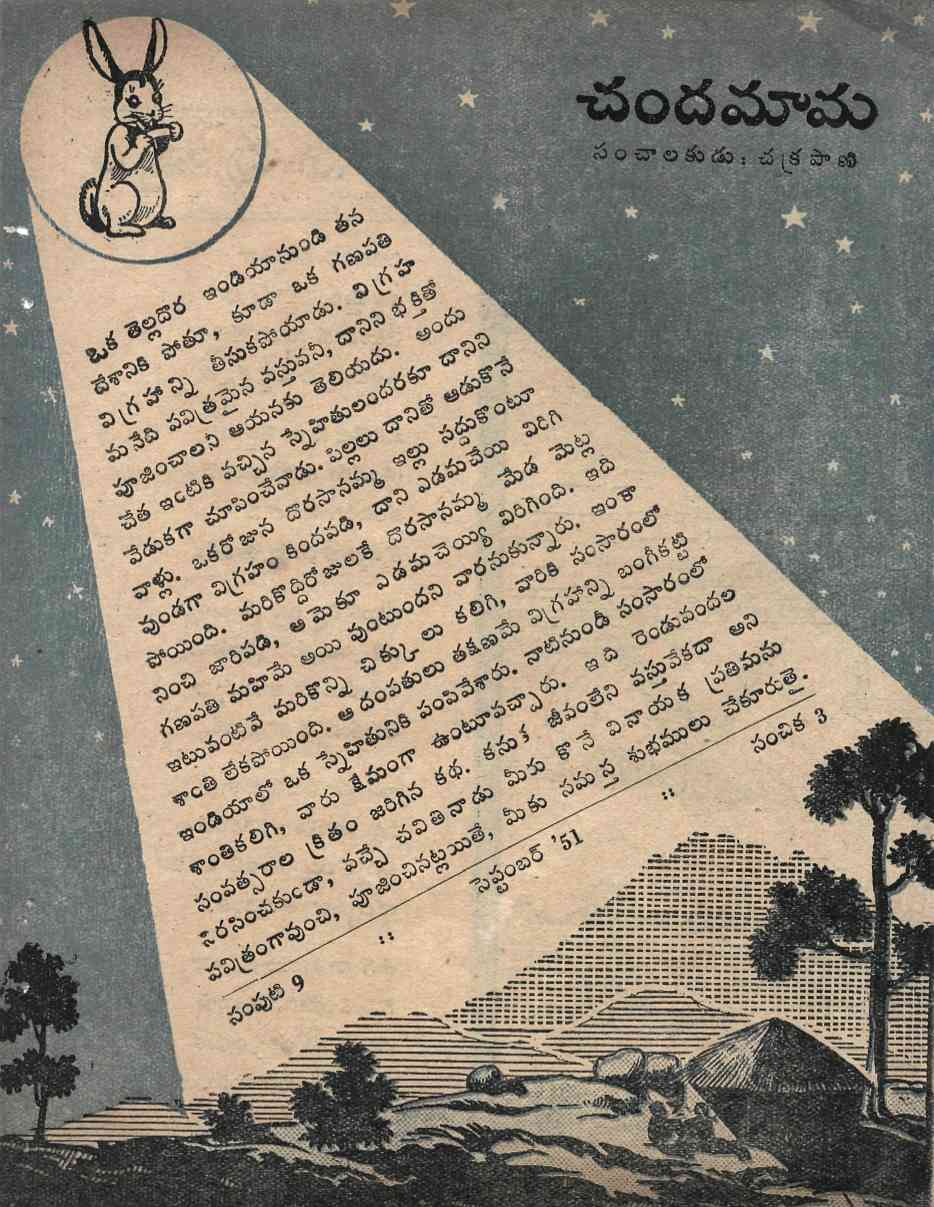 చందమామ
సంచాలకుడు : చక్రపాణి
ఒక తెల్లదొర ఇండియానుండి తన
దేశానికి పోతూ, కూడా ఒక గణపతి
విగ్రహాన్ని తీసుకపోయాడు. విగ్రహ
మనేది పవిత్రమైన వస్తువనీ, దానిని భక్తితో
పూజించాలనీ ఆయనకు తెలియదు. అందు
చేత ఇంటికి వచ్చిన స్నేహితులందరకూ దానిని
వేడుకగా చూపించేవాడు. పిల్లలు దానితో ఆడుకొనే
వాళ్లు. ఒకరోజున దొరసానమ్మ ఇల్లు సద్దుకొంటూ
వుండగా విగ్రహం కిందపడి, దాని ఎడమచేయి విరిగి
పోయింది. మరికొద్దిరోజులకే దొరసానమ్మ మేడ మెట్ల
నించి జారిపడి, ఆమెకూ ఎడమచెయ్యి విరిగింది. ఇది
గణపతి మహిమే అయి వుంటుందని వారనుకున్నారు. ఇంకా
ఇటువంటివే మరికొన్ని చిక్కులు కలిగి, వారికి సంసారంలో
శాంతి లేకపోయింది. ఆ దంపతులు తక్షణమే విగ్రహాన్ని బంగీకట్టి
ఇండియాలో ఒక స్నేహితునికి పంపివేశారు. నాటినుండీ సంసారంలో
శాంతికలిగి, వారు క్షేమంగా ఉంటూవచ్చారు. ఇది రెండువందల
సంవత్సరాల క్రితం జరిగిన కథ. కనుక జీవంలేని వస్తువేకదా అని
నిరసించకుండా, వచ్చే చవితినాడు మీరు కొనే వినాయక ప్రతిమను
పవిత్రంగావుంచి, పూజించినట్లయితే, మీకు సమస్త శుభములు చేకూరుతై.
సంపుటి 9 :: సెప్టెంబర్ '51 :: సంచిక 3